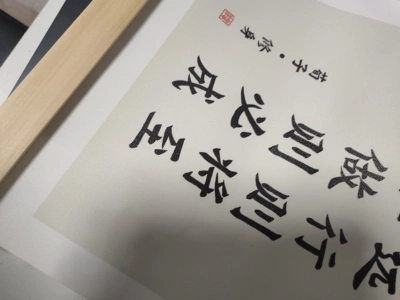 远行则将至
做则必成
荀子·修身